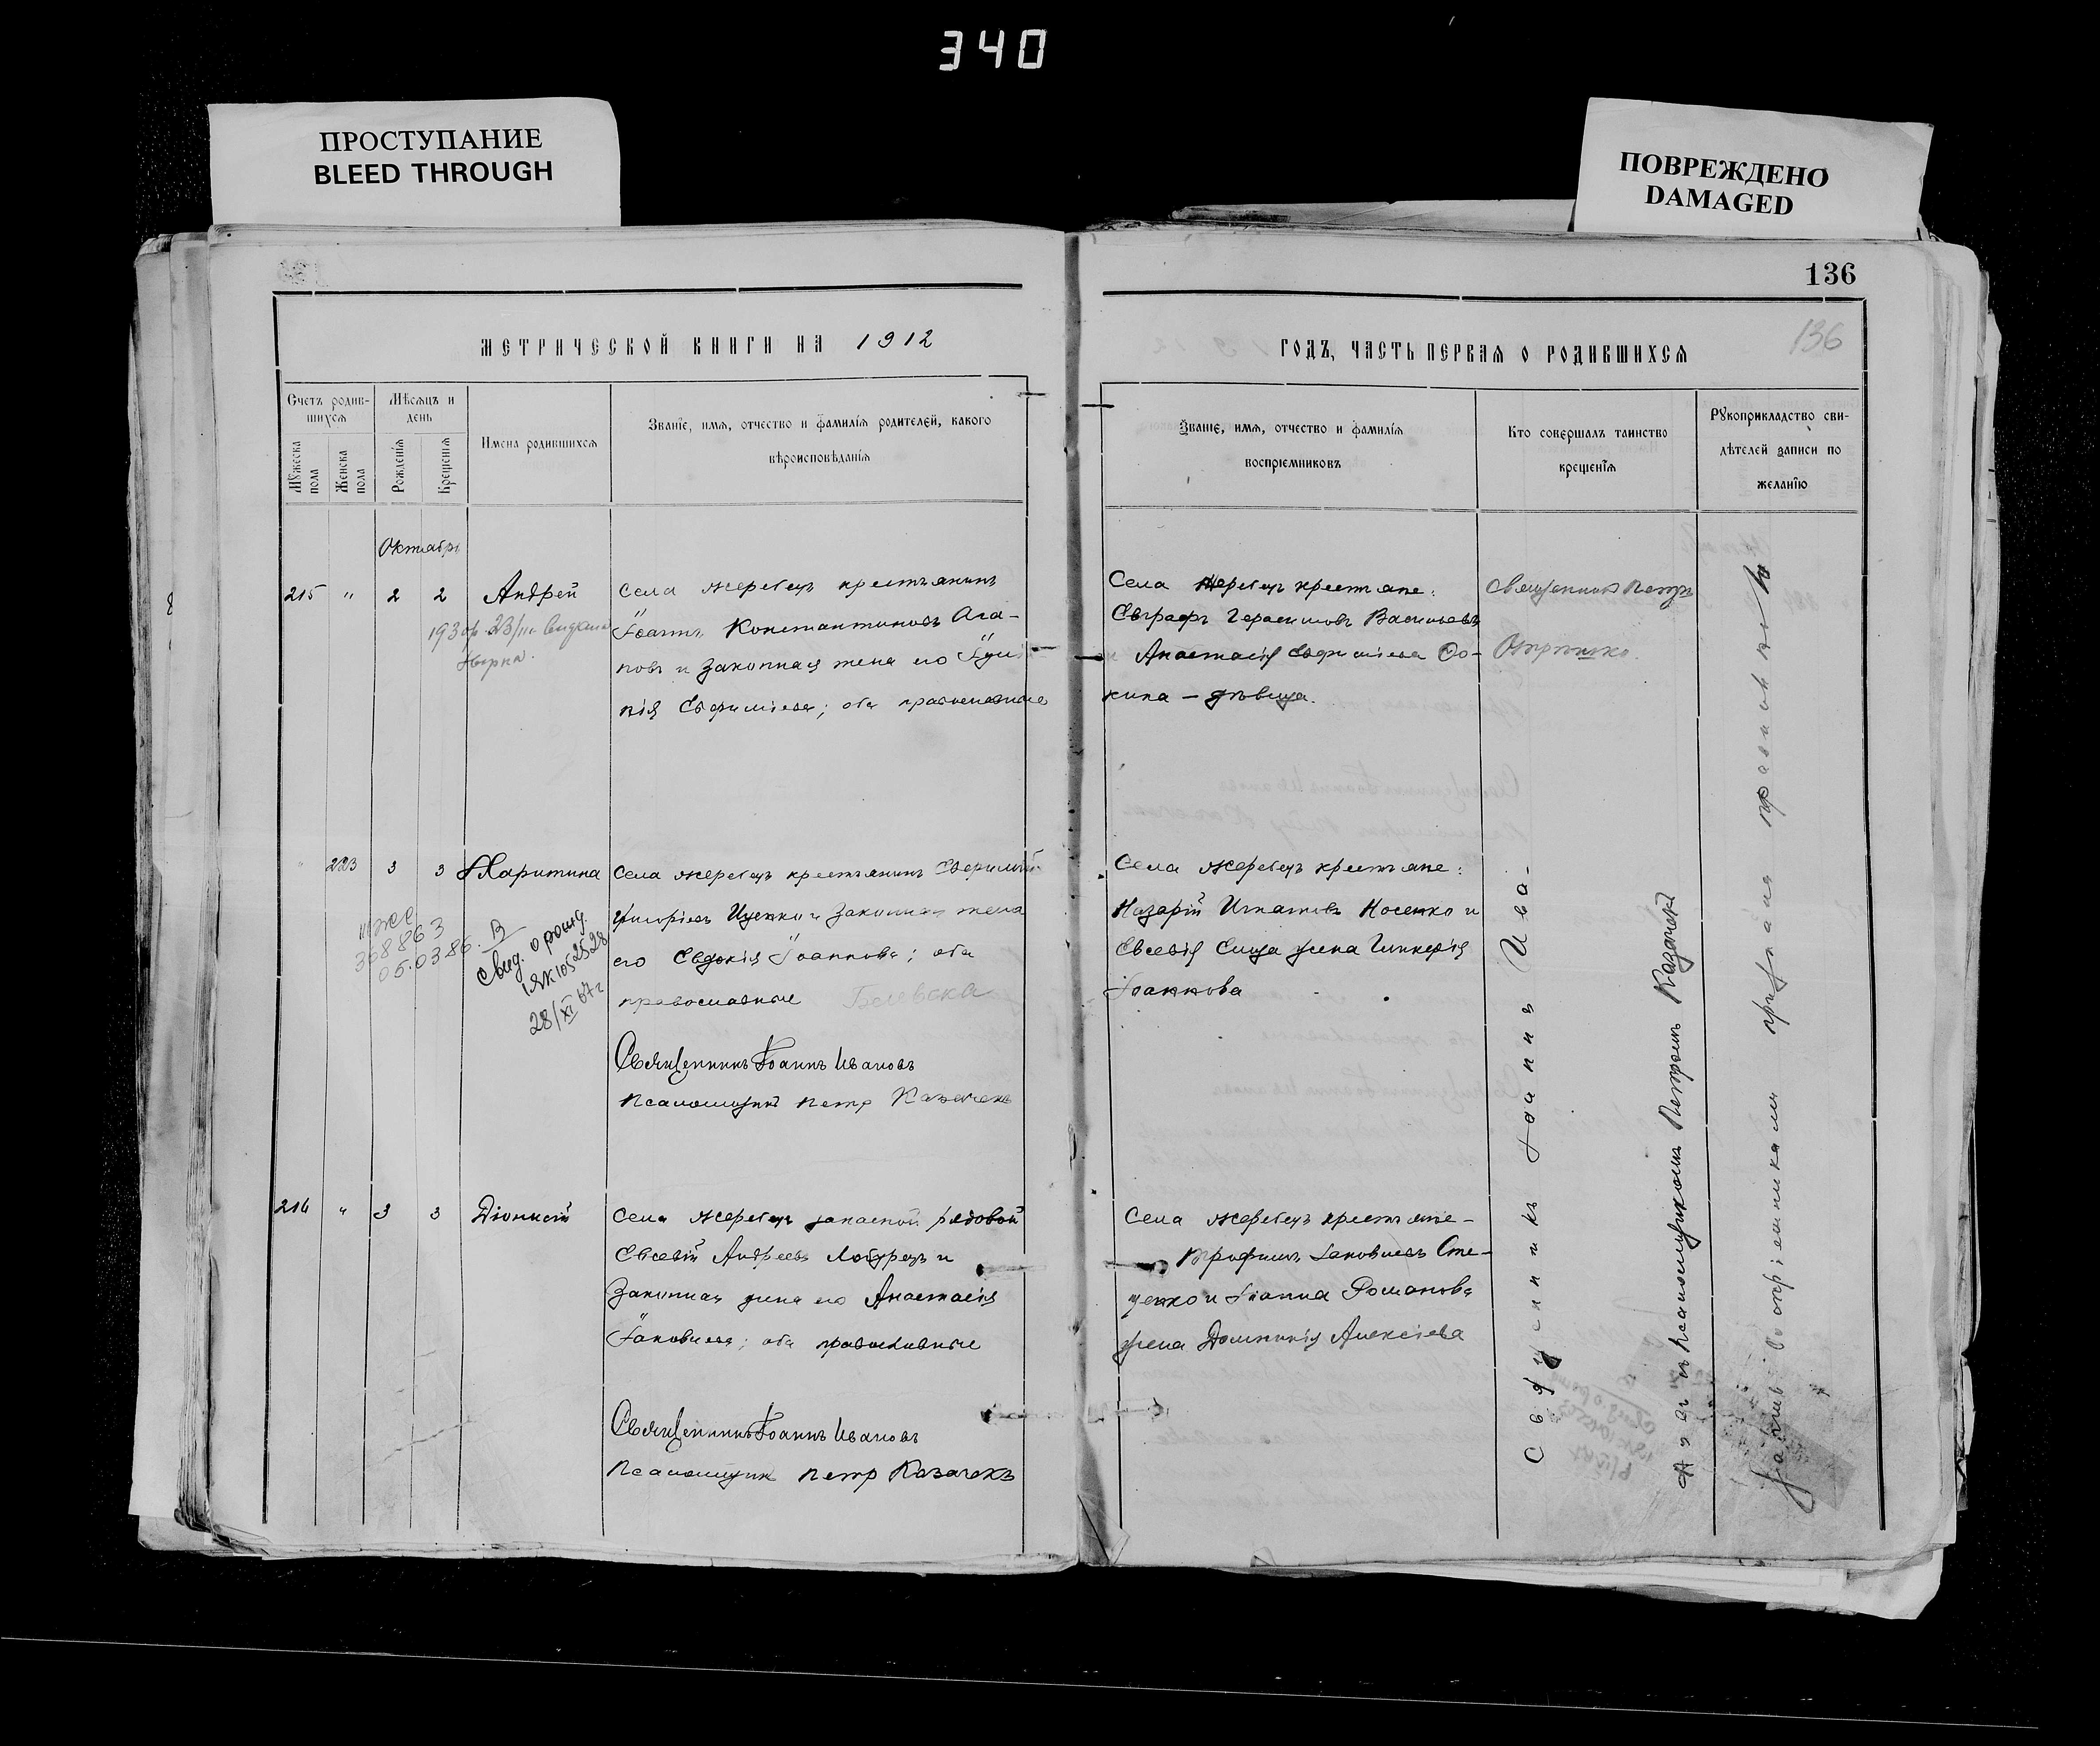 340
ПРОСТУПАНИЕ
BLEED THROUGH
ПОВРЕЖДЕНО
DAMAGED
136
136
МЕТРИЧЕСКОЙ КНИГИ НА 1912
ГОДЪ, ЧАСТЬ ПЕРВАЯ О РОДИВШИХСЯ
Счетъ родив-
шихся
Мужеска пола
Женска пола
Мѣсяцъ и
день
Рожденія
Крещенія
Имена родившихся
Званіе, имя, отчество и фамилія родителей, какого
вѣроисповѣданія
Званіе, имя, отчество и фамилія
воспріемниковъ
Кто совершалъ таинство
крещенія
Рукоприкладство сви-
дѣтелей записи по
желанію
Октябрь
215 " 2 2 Андрей
Села Жеребецъ крестьянинъ
Іоаннъ Константиновъ Ага-
повъ и законная жена его
Евфиміева; оба православные
Села Жеребецъ крестьяне:
Евграфъ Герасимовъ Васильевъ
и Анастасія Евфиміева Фо-
кина - дѣвица.
Священникъ Петръ
223 3 3 Харитина
Села Жеребецъ крестьянинъ Евфимій
Григоріевъ Ищенко и законная жена
его Евдокія Іоаннова; оба
православные
308863
05.03.86.
Свид. о рожд.
28/XI 67г
Священникъ Іоаннъ Ивановъ
Псаломщикъ Петр Казачекъ
Села Жеребецъ крестьяне:
Назарій Игнатовъ Носенко и
Евсевія жена Гликерія
Іоаннова
216 " 3 3 Діонисій
Села Жеребецъ запасной рядовой
Евсевій Андреевъ и
законная жена его Анастасія
Іаковлева; оба православные
Священникъ Іоаннъ Ивановъ
Псаломщикъ Петр Казачекъ
Села Жеребецъ крестьяне -
Трофимъ Іаковлевъ Сте-
ценко и Іоанна Романова
жена Домникія Алексіева
Священникъ Іоаннъ Ива-
новъ съ Псаломщикомъ Петромъ Казачекъ